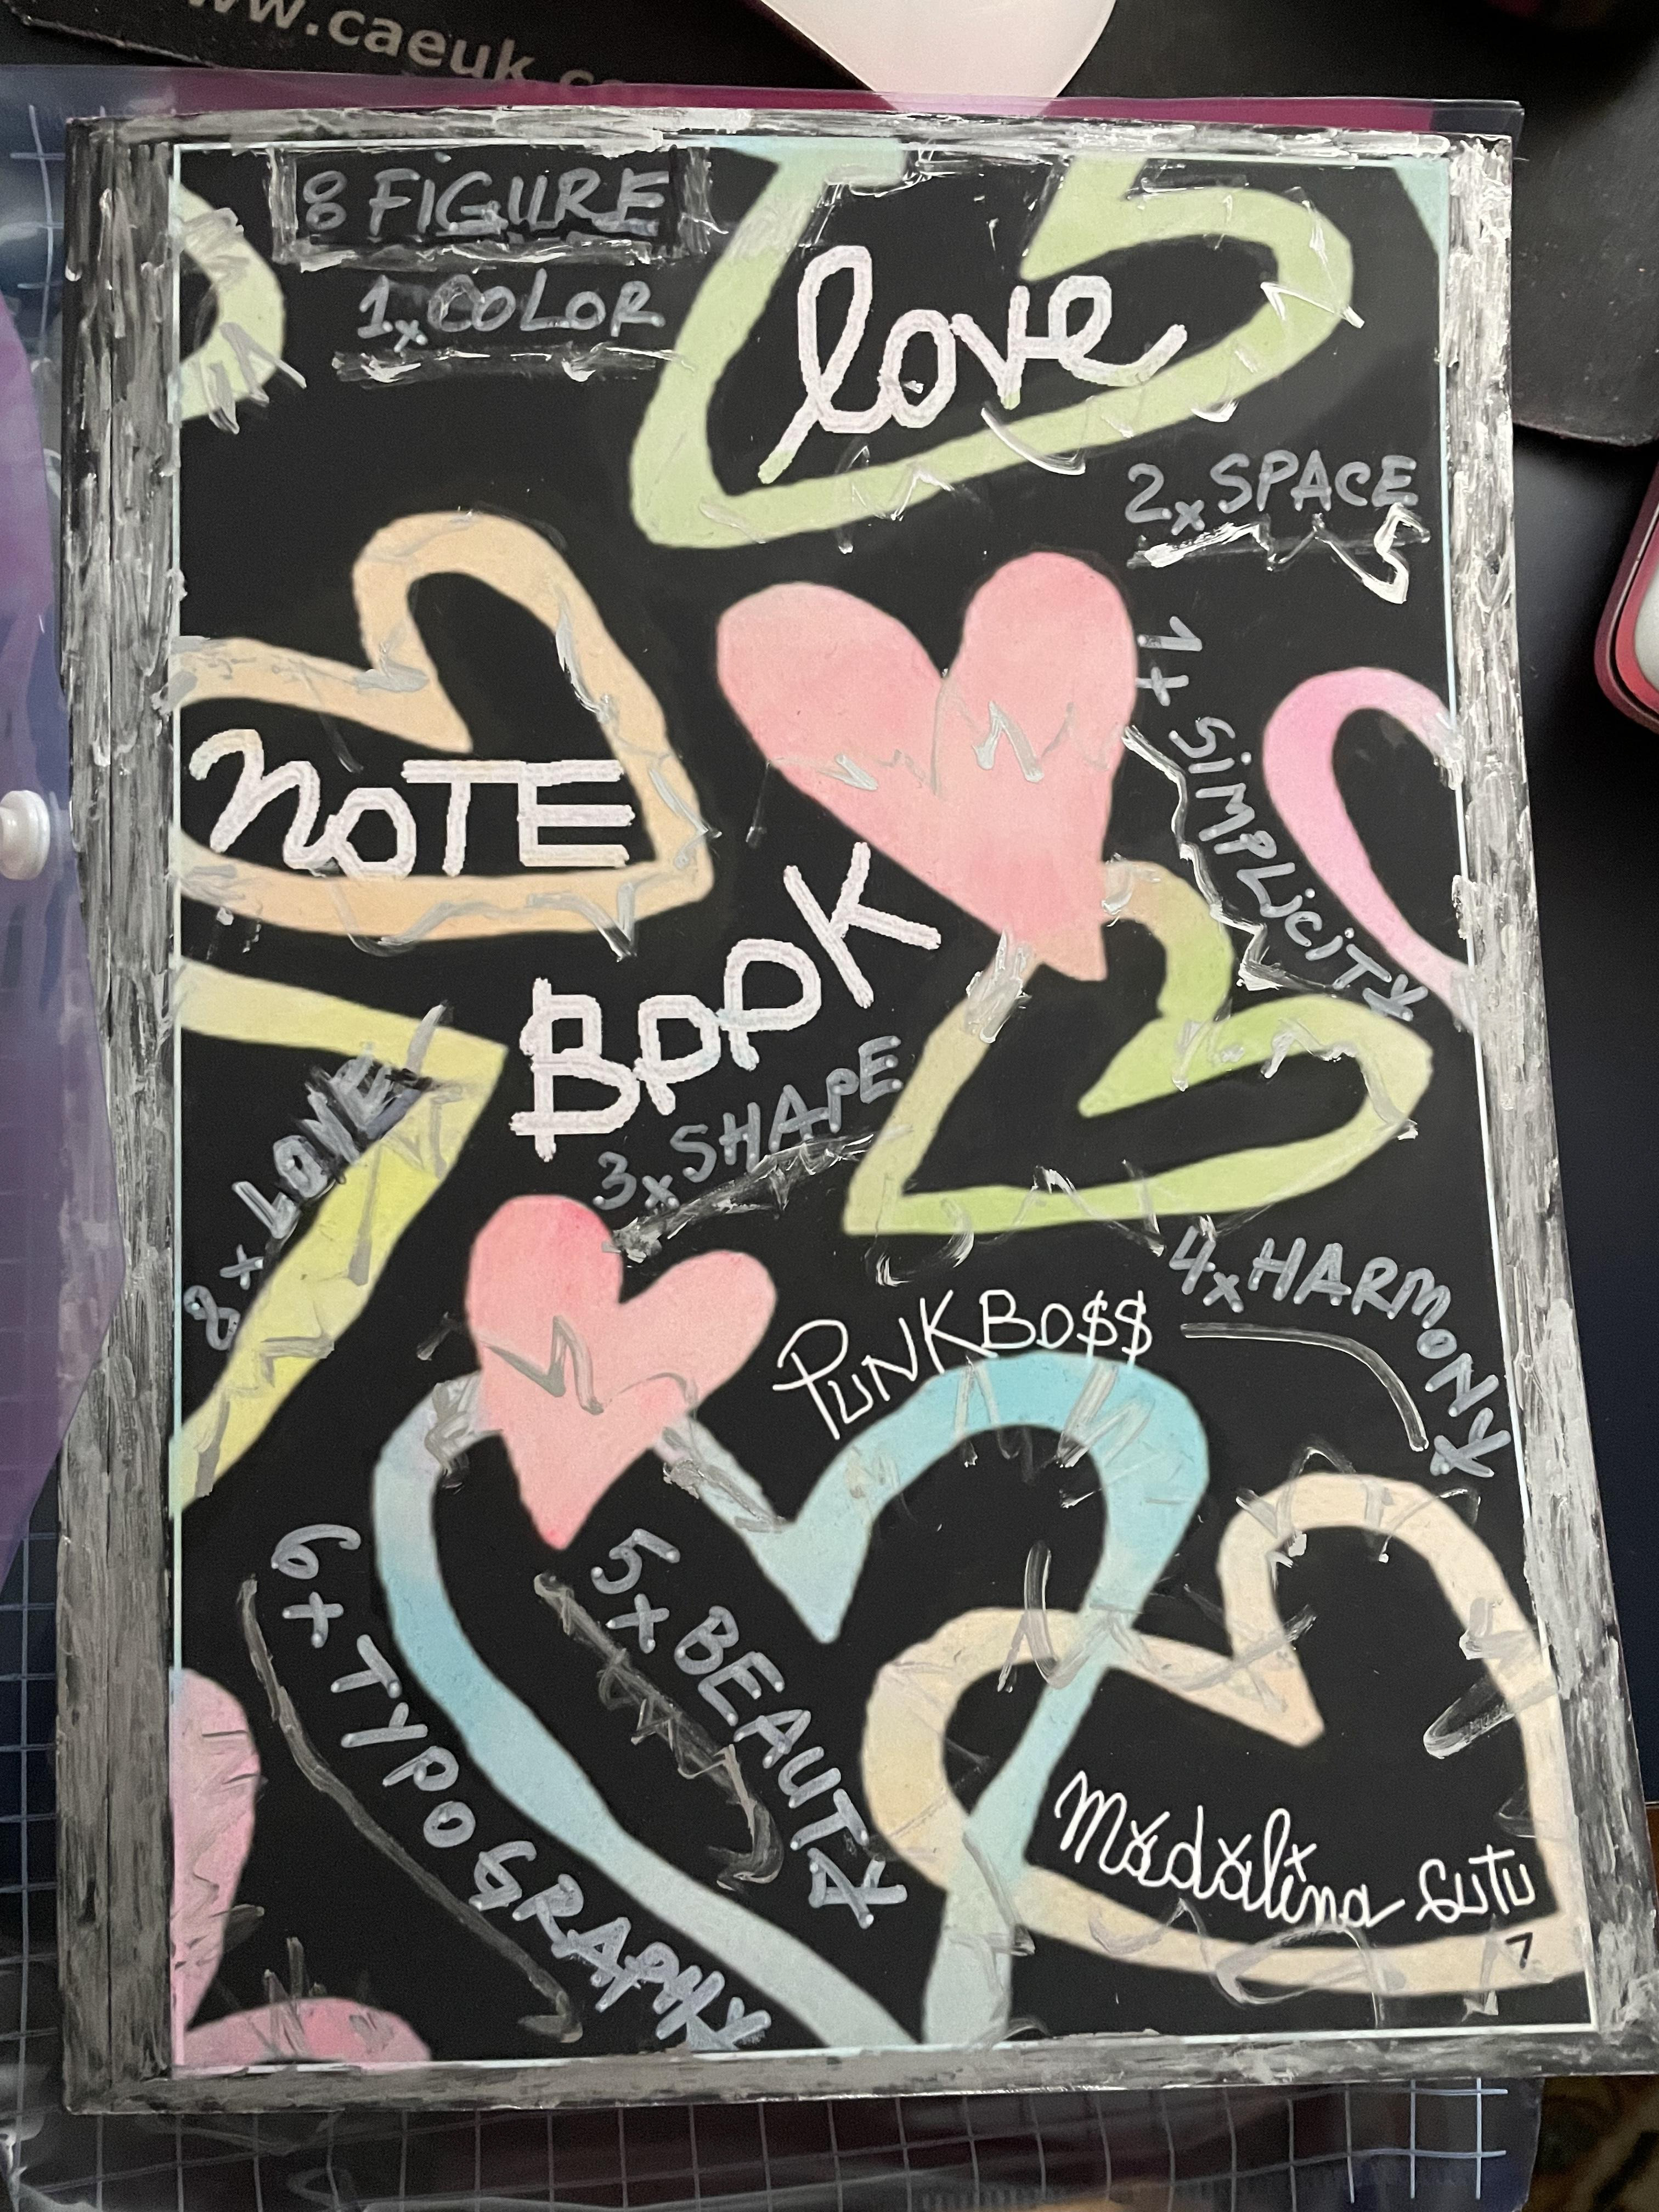 www.caeuk.
8 FIGURE
1x COLOR
love
2x SPACE
7x SiMPLiCiTY
NOTE
BOOK
3x SHAPE
8x LOVE
4x HARMONY
PUNKBO$$
5x BEAUTY
6x TYPOGRAPHY
Mădălina GUTU
7